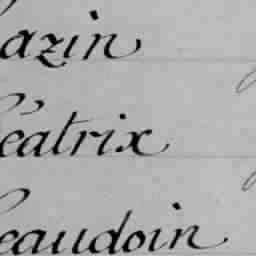 azin
éatrix
eaudoin